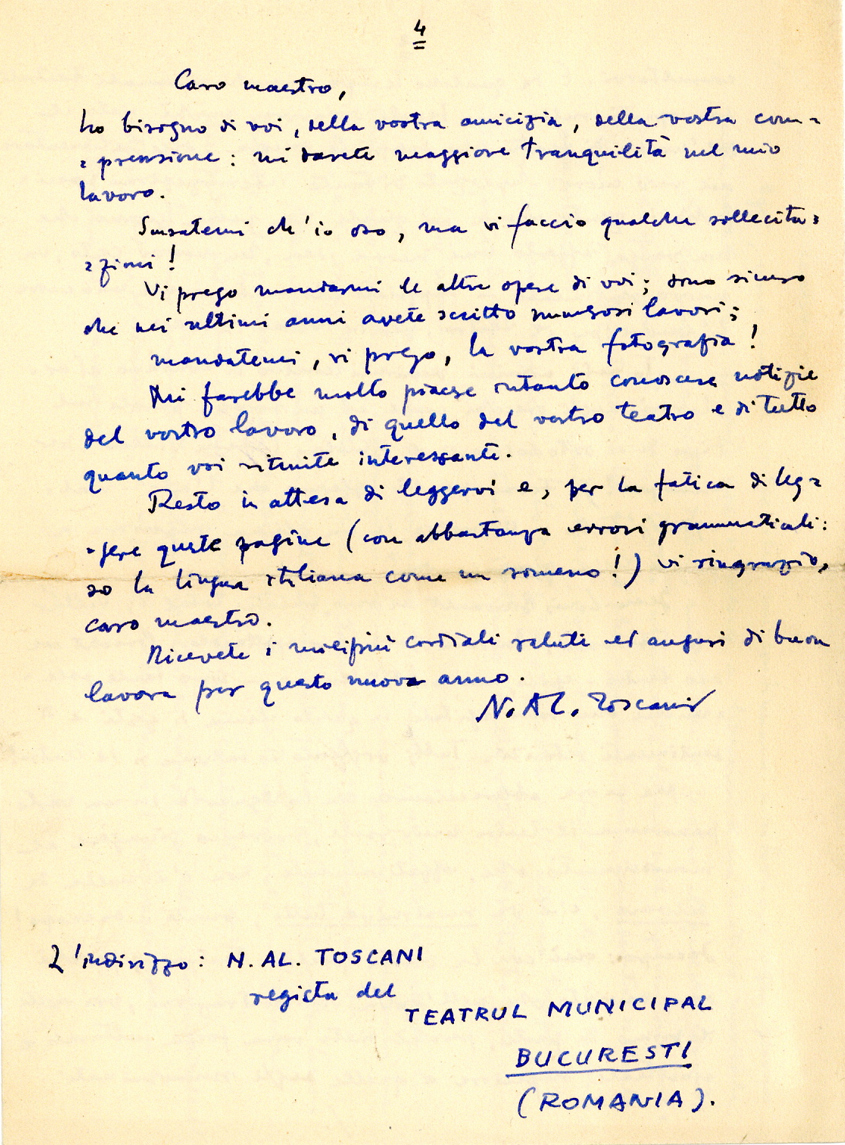 4
Caro maestro,
ho bisogno di voi, della vostra amicizia, della vostra com=
=prensione: mi darete maggiore tranquilità nel mio
lavoro.
Scusatemi ch'io oso, ma vi faccio qualche sollecita=
=zioni!
Vi prego mandarmi le altre opere di voi; sono sicuro
che nei ultimi anni avete scritto numerosi lavori;
mandatemi, vi prego, la vostra fotografia!
Mi farebbe molto piacere intanto conoscere notizie
del vostro lavoro, di quello del vostro teatro e di tutto
quanto voi ritenite interessante.
Resto in attesa di leggervi e, per la fatica di leg=
=gere queste pagine (con abbastanza errori grammaticali:
so la lingua itiliana come un romeno!) vi ringrazio,
caro maestro.
Ricevete i miei più cordiali saluti ed auguri di buon
lavoro per questo nuovo anno.
N. Al. Toscani
L'indirizzo: N. AL. TOSCANI
regista del
TEATRUL MUNICIPAL
BUCURESTI
(ROMANIA).